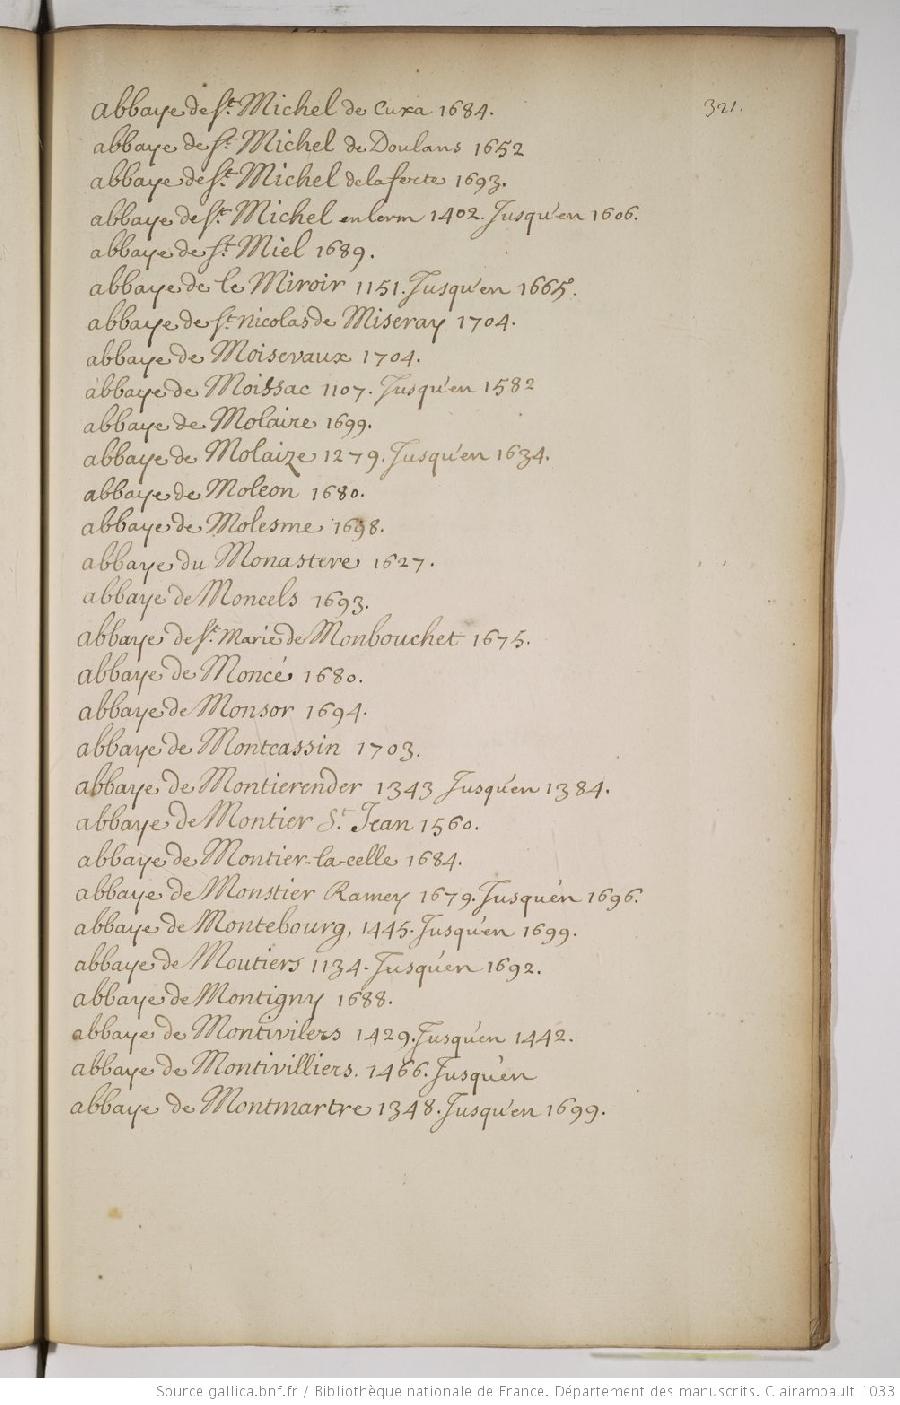 321.
abbaye de St. Michel de Cuxa 1684.
abbaye de St. Michel de Doulans 1652
abbaye de St. Michel de la forte 1693.
abbaye de St. Michel en lerm 1402. Jusqu'en 1606.
abbaye de St. Miel 1689.
abbaye de le Miroir 1151. Jusqu'en 1665.
abbaye de St. nicolas de Miseray 1704.
abbaye de Moisevaux 1704.
abbaye de Moissac 1107. Jusqu'en 1582
abbaye de Molaire 1699.
abbaye de Molaize 1279. Jusqu'en 1634.
abbaye de Moleon 1680.
abbaye de Molesme 1698.
abbaye du Monastere 1627.
abbaye de Moncels 1693.
abbaye de St. Marie de Monbouchet 1675.
abbaye de Moncé 1680.
abbaye de Monsor 1694.
abbaye de Montcassin 1703.
abbaye de Montierender 1343 Jusqu'en 1384.
abbaye de Montier St. Jean 1560.
abbaye de Montier-la-celle 1684.
abbaye de Monstier Ramey 1679. Jusqu'en 1696.
abbaye de Montebourg, 1445. Jusqu'en 1699.
abbaye de Moutiers 1134. Jusqu'en 1692.
abbaye de Montigny 1688.
abbaye de Montivilers 1429. Jusqu'en 1442.
abbaye de Montivilliers. 1466. Jusqu'en
abbaye de Montmartre 1348. Jusqu'en 1699.
Source gallica.bnf.fr / Bibliothèque nationale de France. Département des manuscrits. Clairambault 1033